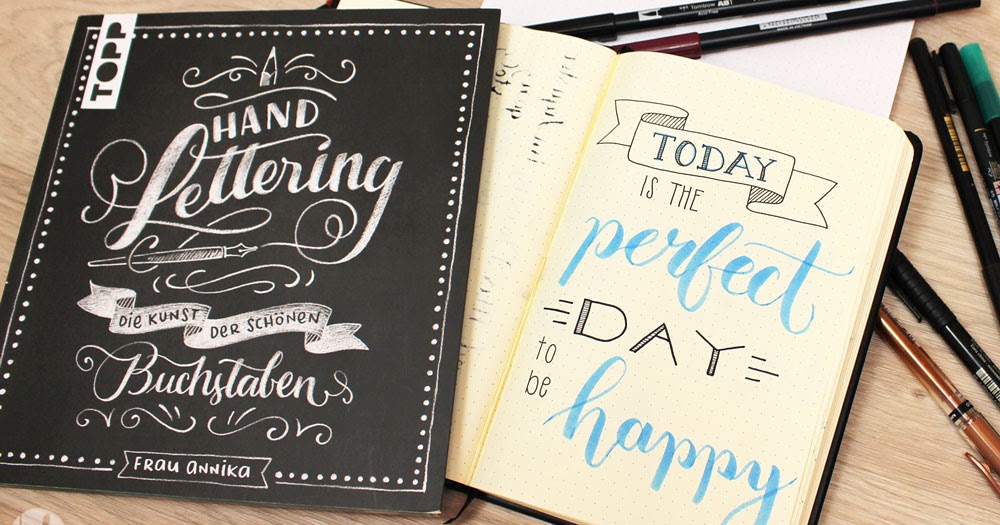 TOPP
HAND
Lettering
DIE KUNST DER SCHÖNEN
Buchstaben
FRAU ANNIKA
TODAY
IS THE
perfect
DAY
to
be
happy
Tombow ABT